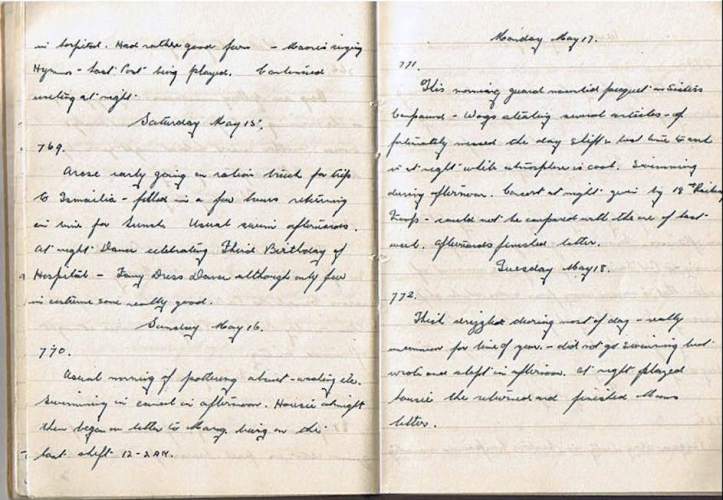 in hospital. Had rather good fun - Maoris singing
Hymns - Last Post being played. Continued
writing at night.
Saturday May 15.
769.
Arose early going on ration truck for trip
to Ismailia - filled in a few hours returning
in time for lunch. Usual swim afterwards.
At night Dance celebrating Third Birthday of
Hospital - Fancy Dress Dance although only few
in costume some really good.
Sunday May 16.
770.
Usual morning of pottering about - writing etc.
Swimming in canal in afternoon. Housie at night
then began on letter to Mary being on the
last shift 12-2 AM.
Monday May 17.
771.
This morning guard mounted
compound - Wogs stealing several articles -
fortunately missed the day shift & had time to
it at night while atmosphere is cool. Swimming
during afternoon. Concert at night given by 18th
Troops - could not be compared with the one of last
week. Afterwards finished letter.
Tuesday May 18.
772.
Thick drizzle during most of day - really
uncommon for time of year - did not go swimming but
wrote and slept in afternoon. At night played
housie then returned and finished Mums
letter.